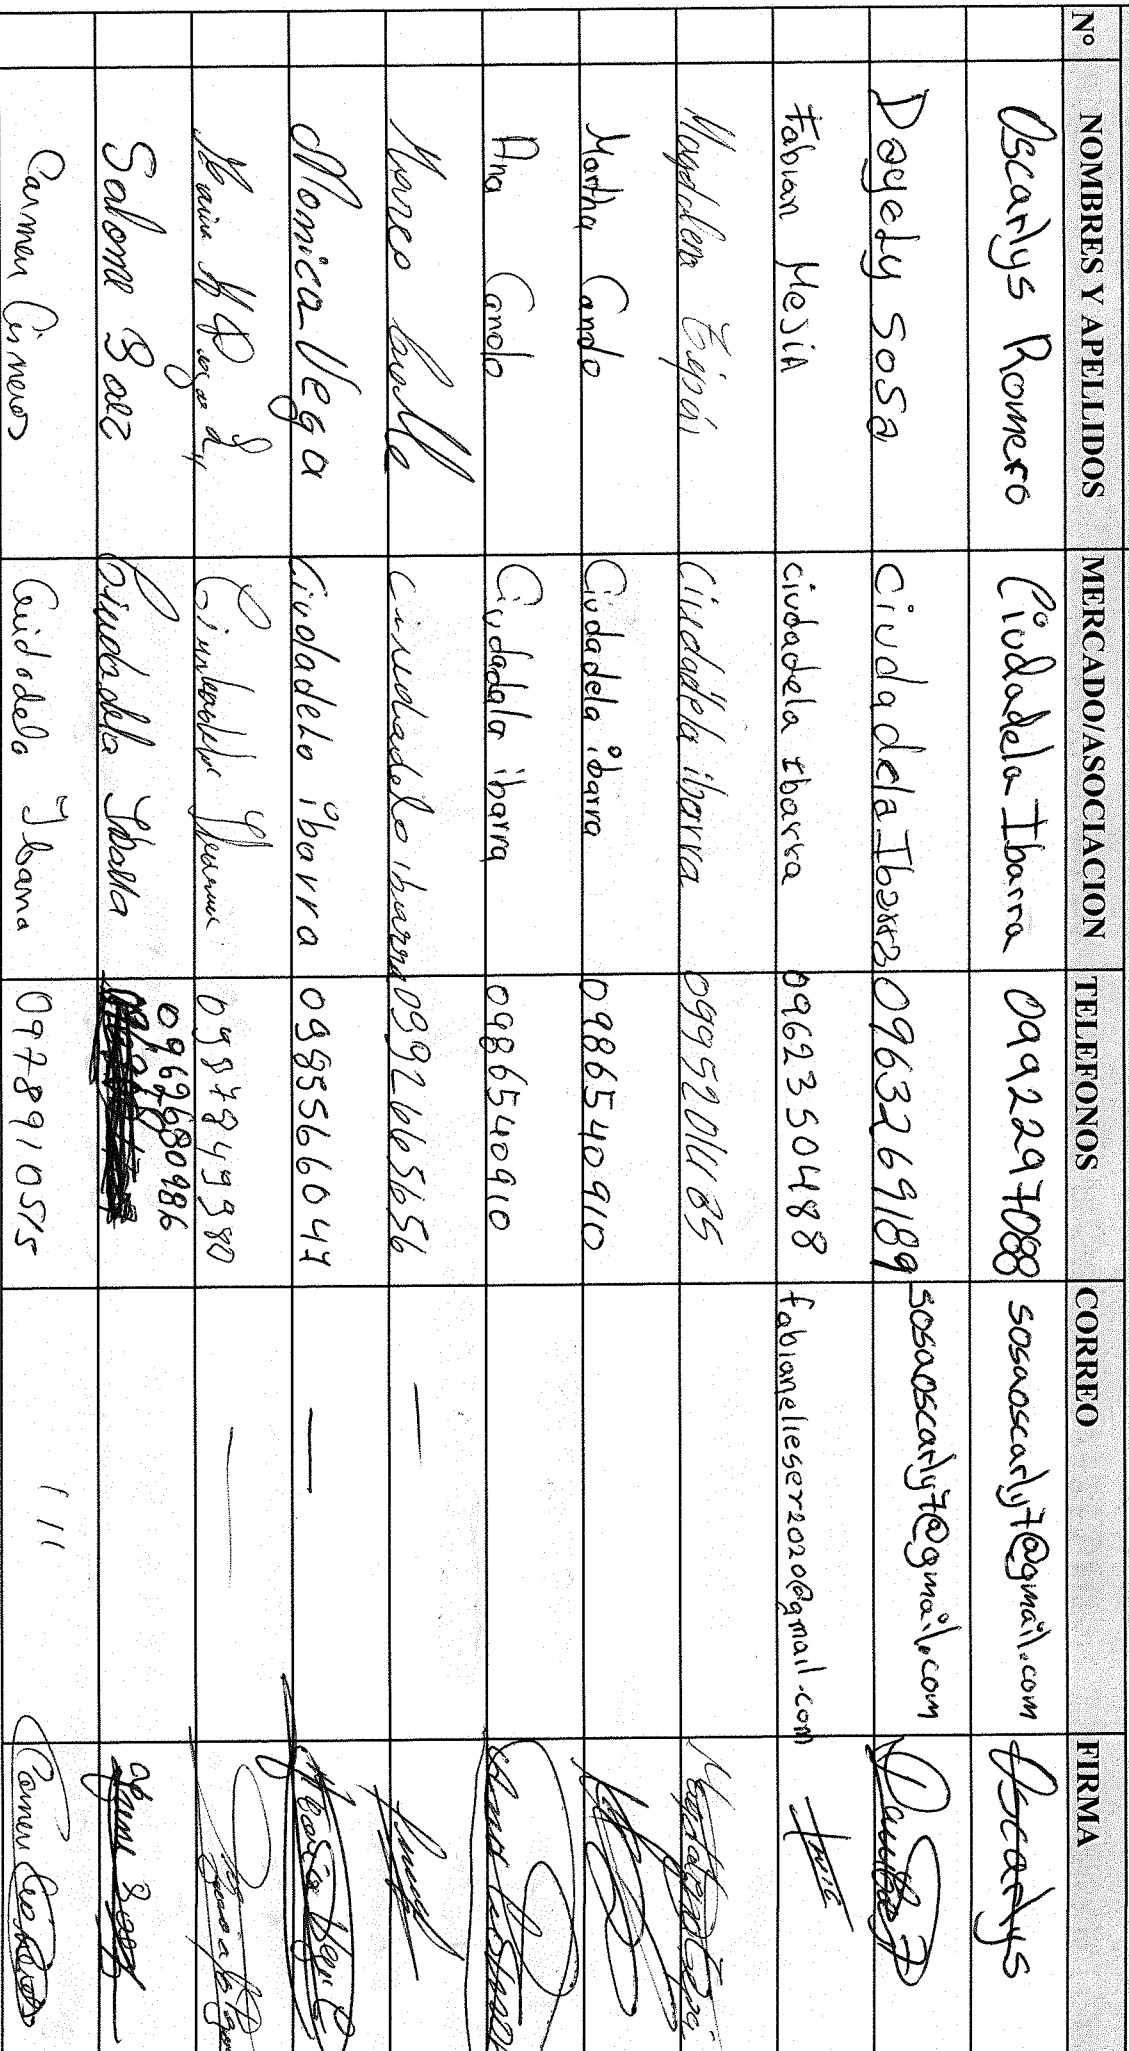 N° NOMBRES Y APELLIDOS MERCADO/ASOCIACION TELEFONOS CORREO FIRMA
Oscarlys Romero Ciudadela Ibarra 0992297088 sosaoscarly7@gmail.com Oscarlys
Dayely Sosa Ciudadela Ibarra 0963269189 sosaoscarly7@gmail.com
Fabian MejiA ciudadela Ibarra 0962350488 fabianelieser2020@gmail.com
Magdalena Ciudadela ibarra
Martha Cando Ciudadela ibarra 0986540910
Ana Cando Ciudadala ibarra 0986540910
ciudadela ibarra 0992665656 —
Monica Vega Ciudadela ibarra 0985566047 —
0987849980 —
Salome Baez Ciudadela Ibarra 0962680986
Carmen Cisneros Cuidadela Ibarra 0978910515 Carmen Cisneros